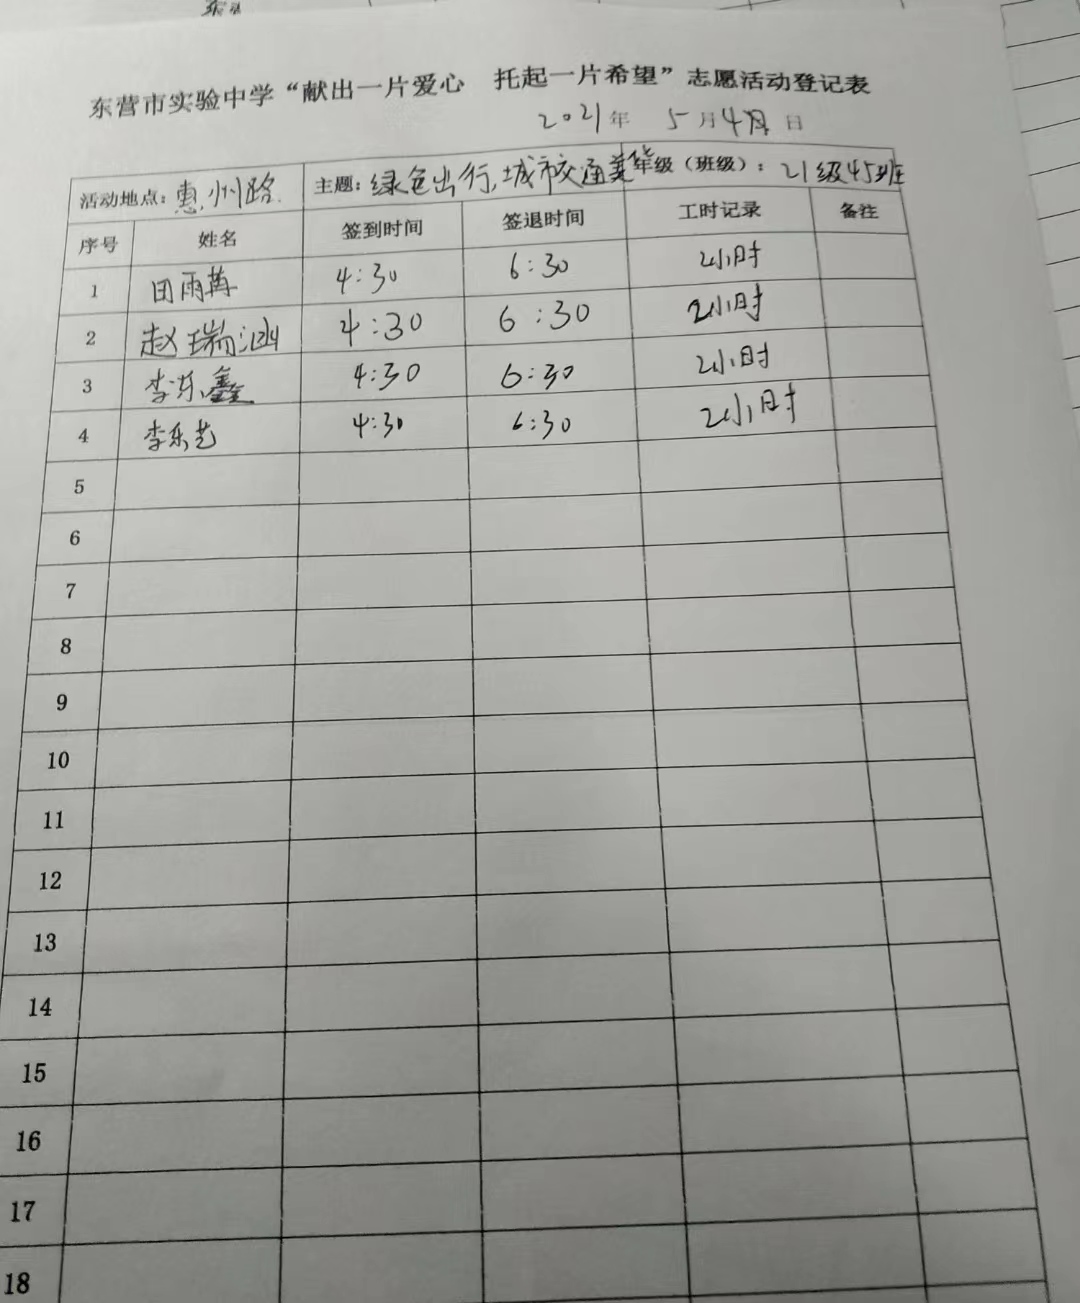 东营市实验中学“献出一片爱心 托起一片希望”志愿活动登记表
2021年 5月4日
活动地点：惠州路 主题：绿色出行，城市交通 年级（班级）：21级45班
序号 姓名 签到时间 签退时间 工时记录 备注
1 田雨 4:30 6:30 2小时
2 赵瑞涵 4:30 6:30 2小时
3 李东鑫 4:30 6:30 2小时
4 李乐艺 4:30 6:30 2小时
5
6
7
8
9
10
11
12
13
14
15
16
17
18